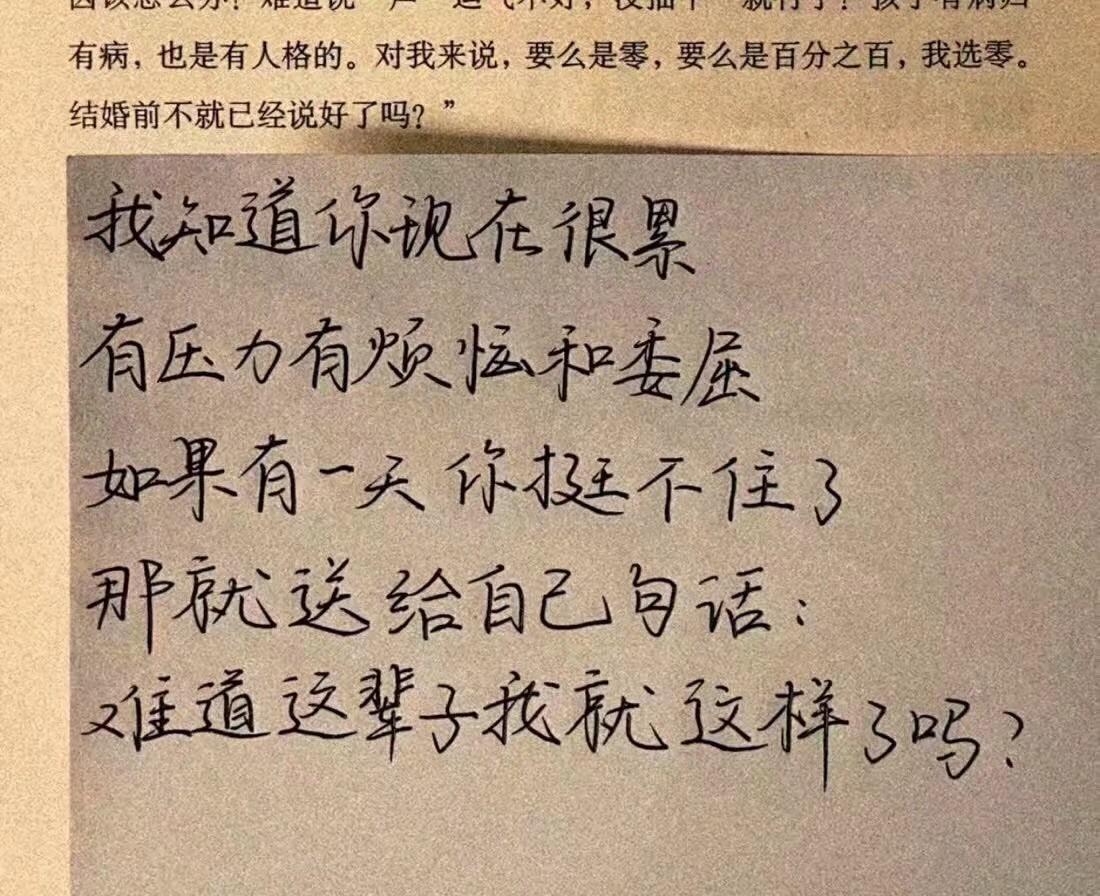 有病，也是有人格的。对我来说，要么是零，要么是百分之百，我选零。
结婚前不就已经说好了吗？”
我知道你现在很累
有压力有烦恼和委屈
如果有一天你挺不住了
那就送给自己句话：
难道这辈子我就这样了吗？